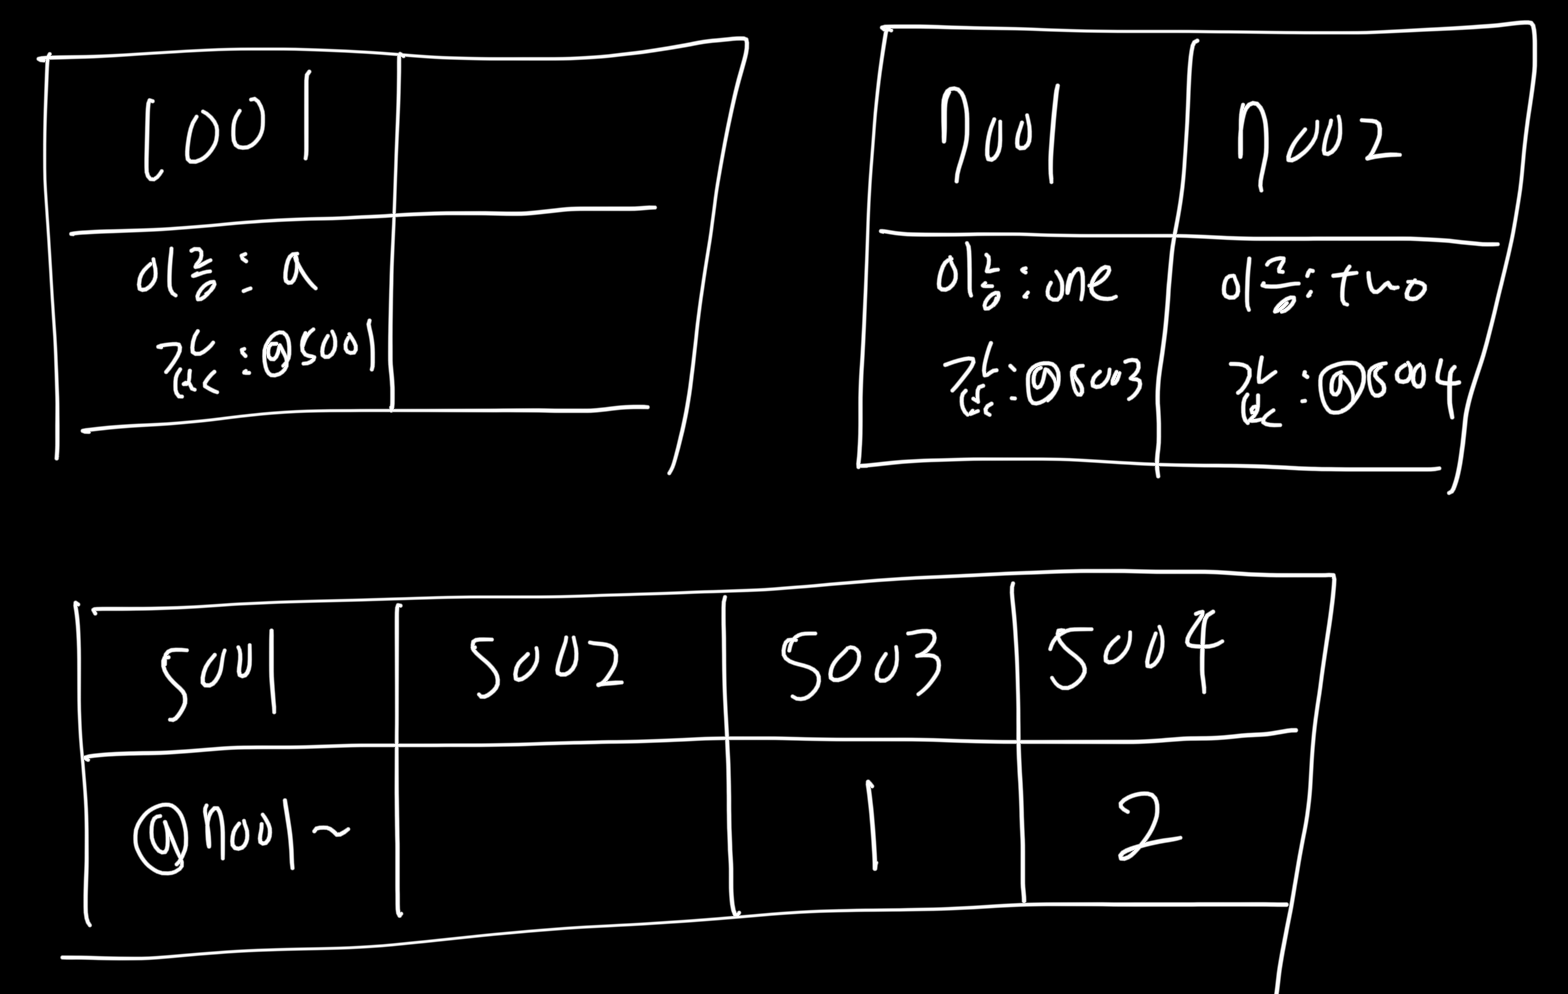 1001
이름 : a
값 : @5001
7001 7002
이름 : one 이름 : two
값 : @5003 값 : @5004
5001 5002 5003 5004
@7001~ 1 2